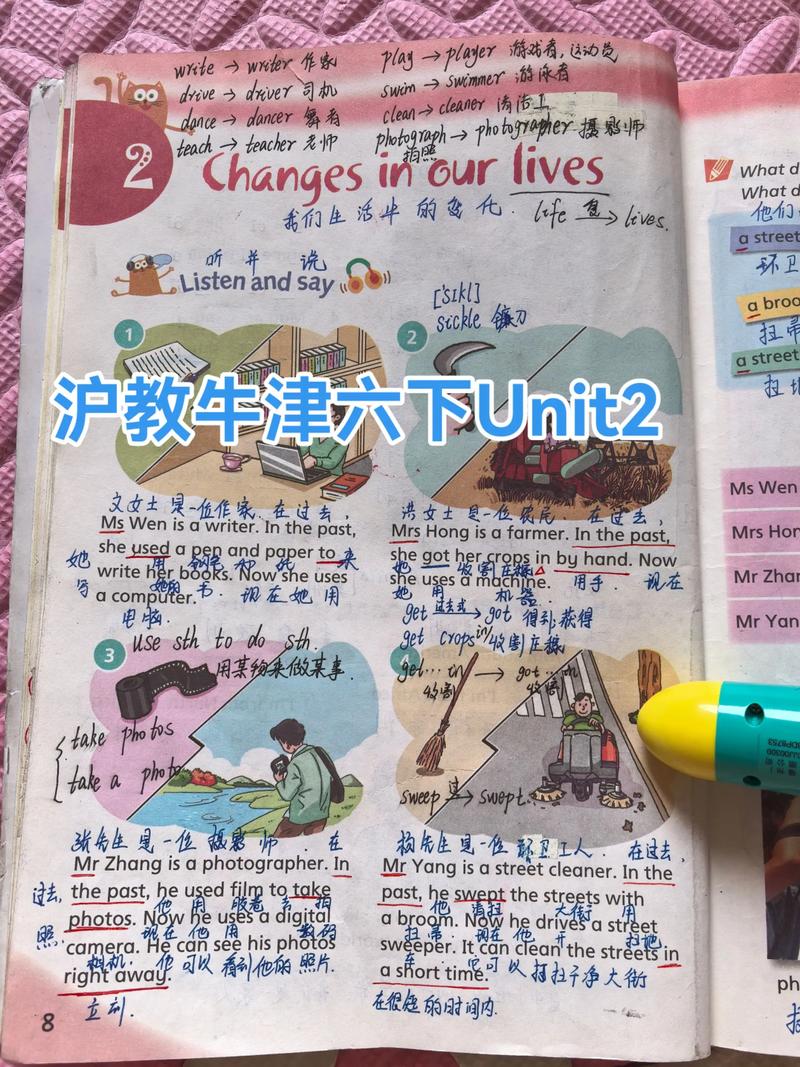 write → writer 作家
play → player 游戏者，运动员
drive → driver 司机
swim → swimmer 游泳者
dance → dancer 舞者
clean → cleaner 清洁工
teach → teacher 老师
photograph → photographer 摄影师
拍照
2
Changes in our lives
我们生活中的变化.
life 复→ lives.
听并说
Listen and say
['sɪkl]
sickle 镰刀
1
2
沪教牛津六下Unit2
文女士是一位作家. 在过去,
Ms Wen is a writer. In the past,
she used a pen and paper to
她用钢笔和纸来
write her books. Now she uses
写她的书. 现在她用
a computer.
电脑.
洪女士是一位农民 在过去,
Mrs Hong is a farmer. In the past,
she got her crops in by hand. Now
她收割庄稼
she uses a machine.
用手. 现在
她用机器.
get 过去式→ got 得到;获得
get crops in 收割庄稼
get...in → got...in
收割 收割
3
use sth to do sth.
用某物来做某事.
4
take photos
take a photo
sweep 过→ swept.
张先生是一位摄影师. 在
Mr Zhang is a photographer. In
过去,
the past, he used film to take
他用胶卷去拍
photos. Now he uses a digital
照. 现在他用数码
camera. He can see his photos
相机. 他可以看到他的照片.
right away.
立刻.
杨先生是一位环卫工人. 在过去,
Mr Yang is a street cleaner. In the
past, he swept the streets with
他清扫大街用
a broom. Now he drives a street
扫帚. 现在他开扫地
sweeper. It can clean the streets in
车. 它可以打扫干净大街
a short time.
在很短的时间内.
8
What d
What d
他们
a street
环卫
a broo
扫帚
a street
扫地
Ms Wen
Mrs Hon
Mr Zhan
Mr Yan
ph